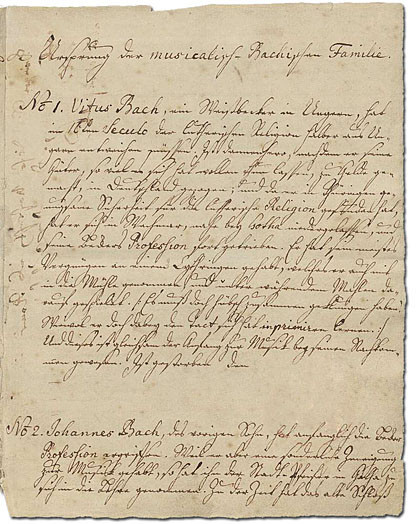 Ursprung der musicalisch-Bachischen Familie.
No 1. Vitus Bach, ein Weißbecker in Ungern, hat
im 16ten Seculo der lutherischen Religion halber aus Un-
gern entweichen müssen. Ist dannenhero, nachdem er seine
Güter, so viel es sich hat wollen thun lassen, zu Gelde ge-
macht, in Deutschland gezogen; und da er in Thüringen ge-
nugsame Sicherheit für die lutherische Religion gefunden hat,
hat er sich in Wechmar, nahe bey Gotha niedergelassen, und
seines Beckers Profession fortgetrieben. Er hat sein meistes
Vergnügen an einem Cythringen gehabt, welches er auch mit
in die Mühle genommen, und unter währendem Mahlen da-
rauf gespielet. (Es muß doch hübsch zusammen geklungen haben!
Wiewol er doch dabey den Tact sich hat imprimiren lernen.)
Und dieß ist gleichsam der Anfang zur Musik bey seinen Nachkom-
men gewesen. Ist gestorben den
No 2. Johannes Bach, des vorigen Sohn, hat anfänglich die Becker
Profession ergriffen. Weil er aber eine sonderliche Zuneigung
zur Musik gehabt, so hat ihn der Stadt Pfeiffer in Gotha zu
sich in die Lehre genommen. Zu der Zeit hat das alte Schloß